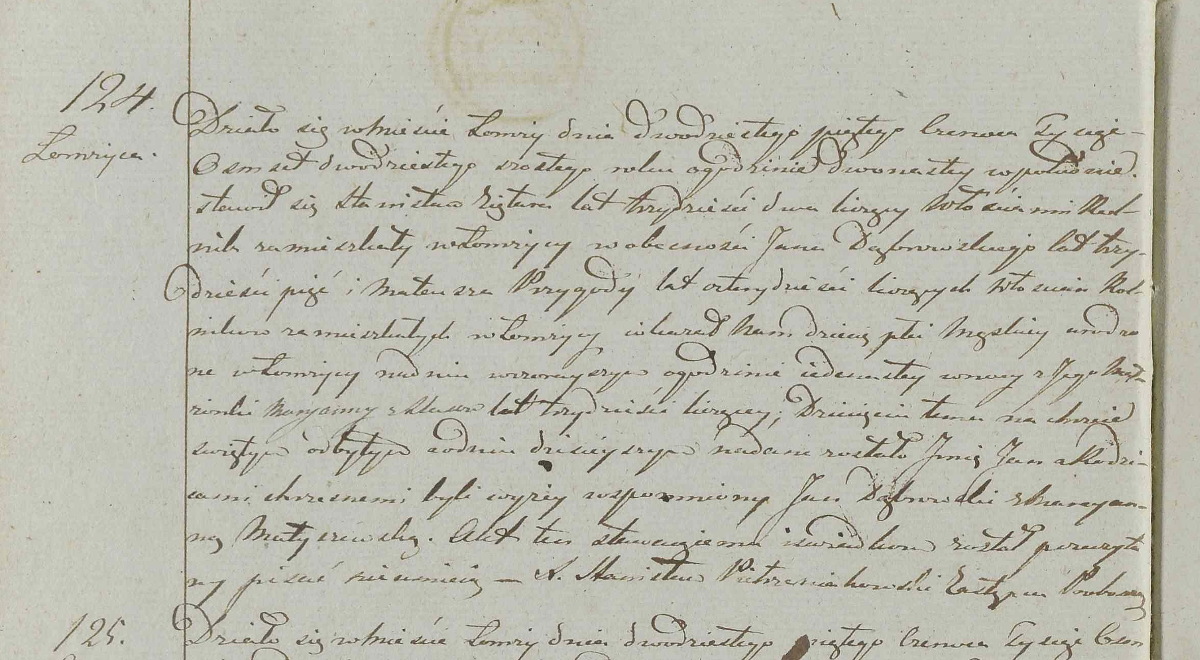 124.
Łomżyca.
Działo się w Mieście Łomży dnia dwudziestego piątego Czerwca Tysiąc
Osmset dwudziestego szostego roku o godzinie dwunastey w południe.
stawił się Stanisław Zięta lat trzydzieści dwa liczący Włościanin Rol-
nik zamieszkały w Łomżycy w obecności Jana Dąbrowskiego lat trzy-
dzieści pięć i Mateusza Przygody lat czterdzieści liczących Włościan Rol-
ników zamieszkałych w Łomżycy, i okazał Nam dziecię płci Męskiey urodzo
ne w Łomżycy na dniu wczorayszym o godzinie iedenastey w nocy z Jego Mał-
żonki Maryanny z lat trzydzieści liczącey; Dziecięciu temu na chrzcie
świętym odbytym w dniu dzisieyszym nadane zostało Jmię Jan a Rodzi-
cami chrzesnemi byli wyżey wspomniony Jan Dąbrowski z Maryan-
ną Matyszewską. Akt ten stawaiącemu i świadkom został przeczyta
ny pisać nieumieią — X. Stanisław Zastępca Proboszcza
125.
Działo się w Mieście Łomży dnia dwudziestego piątego Czerwca Tysiąc Osm